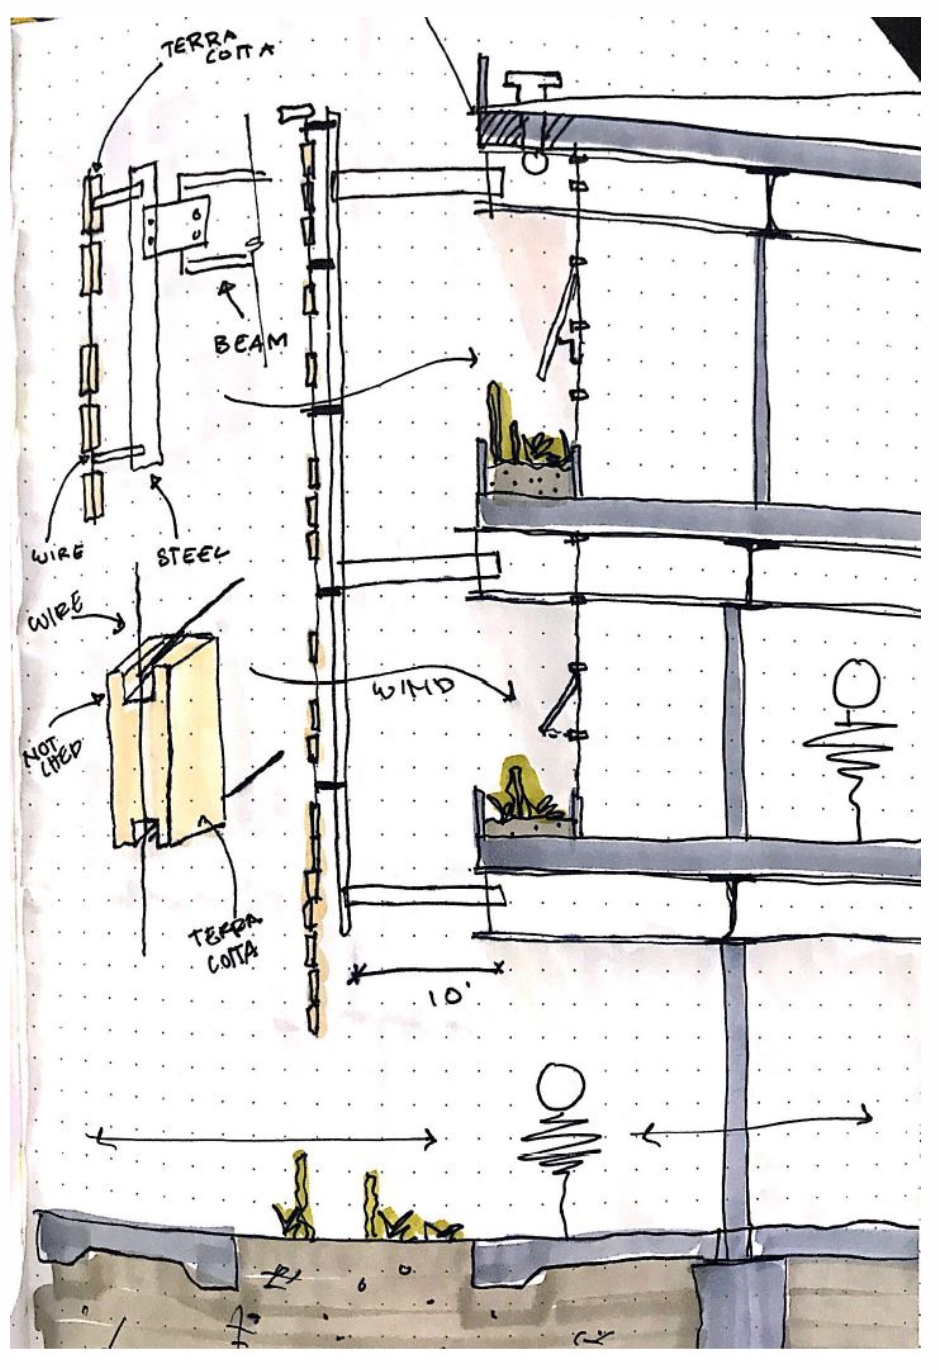 TERRA
COTTA
BEAM
WIRE
STEEL
WIRE
NOT
CHED
WIND
TERRA
COTTA
10'